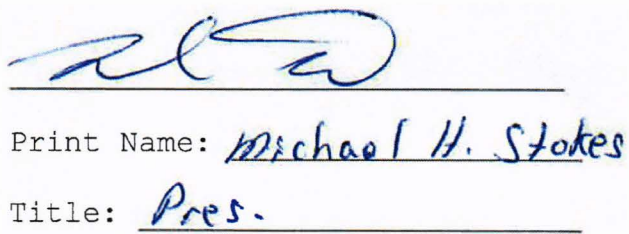 Print Name: Michael H. Stokes
Title: Pres.